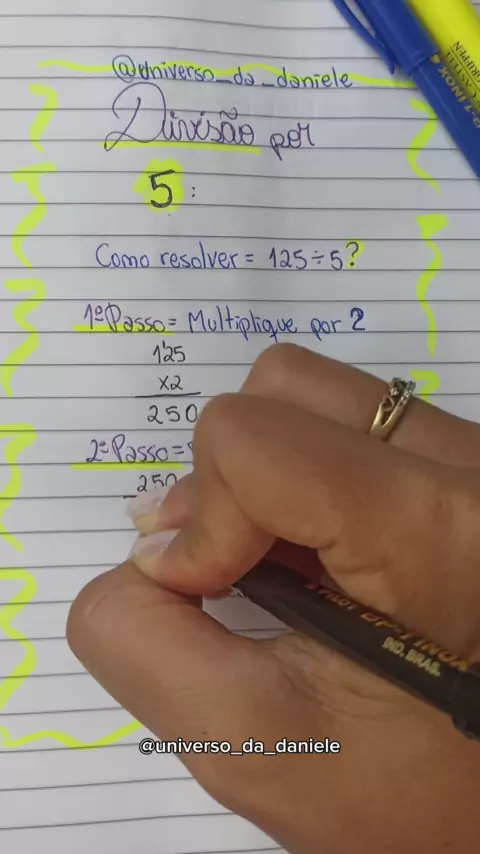 @universo_da_daniele
Divisão por
5:
Como resolver = 125÷5?
1º Passo = Multiplique por 2
125
x2
250
2º Passo =
250
PILOT BP-1 INOX
IND. BRAS.
@universo_da_daniele